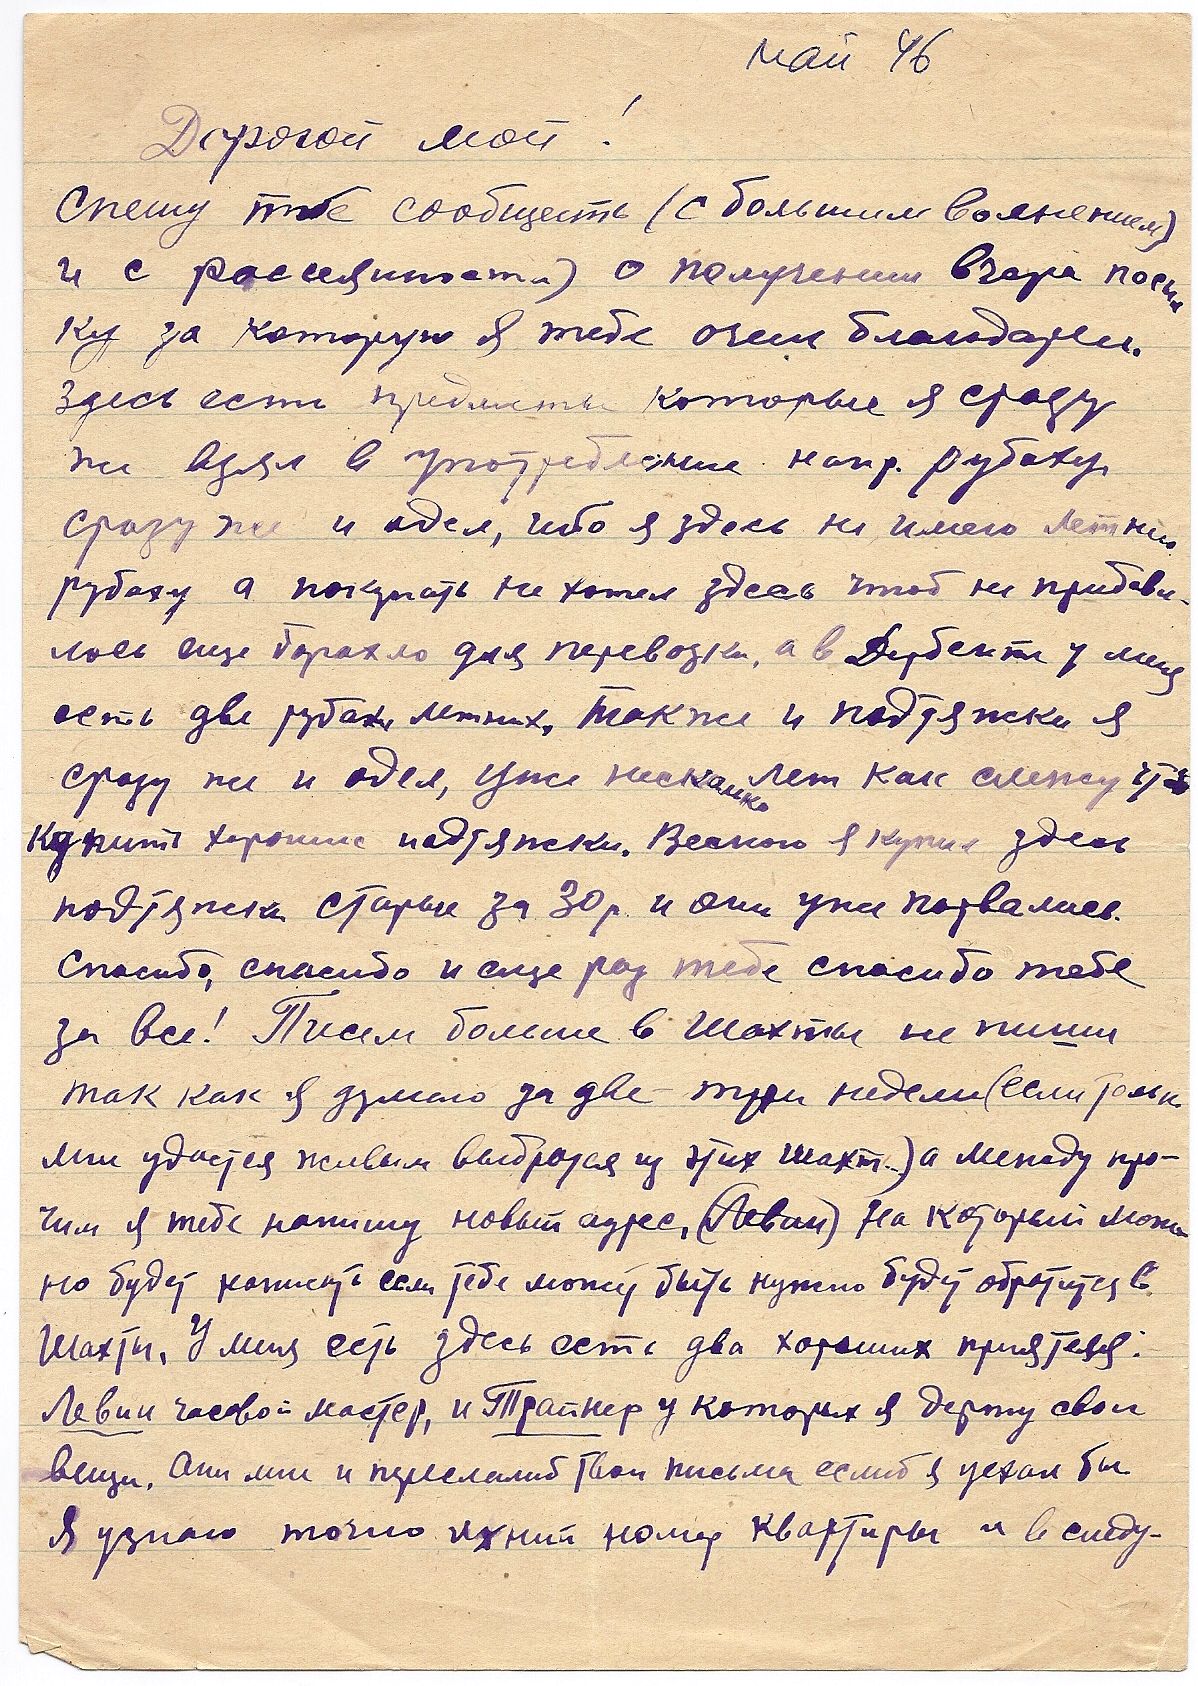 май 46
Дорогой мой!
Спешу тебе сообщить (с большим волнением)
и с рассеяности) о получении вчера посыл
ку за которую я тебе очень благодарен.
Здесь есть предметы которые я сразу
же взял в употребление напр. рубаху
сразу же и одел, ибо я здесь не имею летнию
рубаху а покупать не хотел здесь чтоб не прибави-
лось еще барахло для перевозки, а в Дербенте у меня
есть две рубахи летних. Также и подтяжки я
сразу же и одел, уже несколько лет как слежу чтоб
купить хорошие подтяжки. Весною я купил здесь
подтяжки старые за 30 р. и они уже порвались.
Спасибо, спасибо и еще раз тебе спасибо тебе
за все! Писем больше в Шахты не пиши
так как я думаю за две-три недели (если только
мне удастся живым выбротся из этих шахт.) а между про-
чим я тебе напишу новый адрес, (Левин) на который мож
но будет написать если тебе может быть нужно будет обротится в
Шахты. У меня есть здесь есть два хороших приятеля:
Левин часовой мастер, и Трайнер у которых я держу свои
вещи. Они мне и переслалиб твои письма еслиб я уехал бы
Я узнаю точно ихний номер квартиры и в следу-